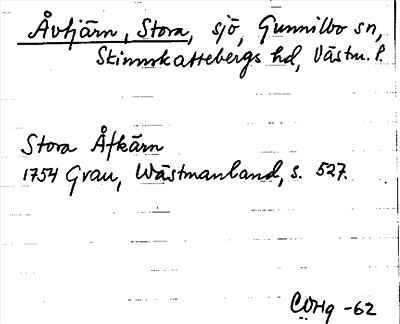 Åvtjärn, Stora, sjö, Gunnilbo sn,
Skinnskattebergs hd, Västm. l.
Stora Åfkärn
1754 Grau, Wästmanland, s. 527.
-62